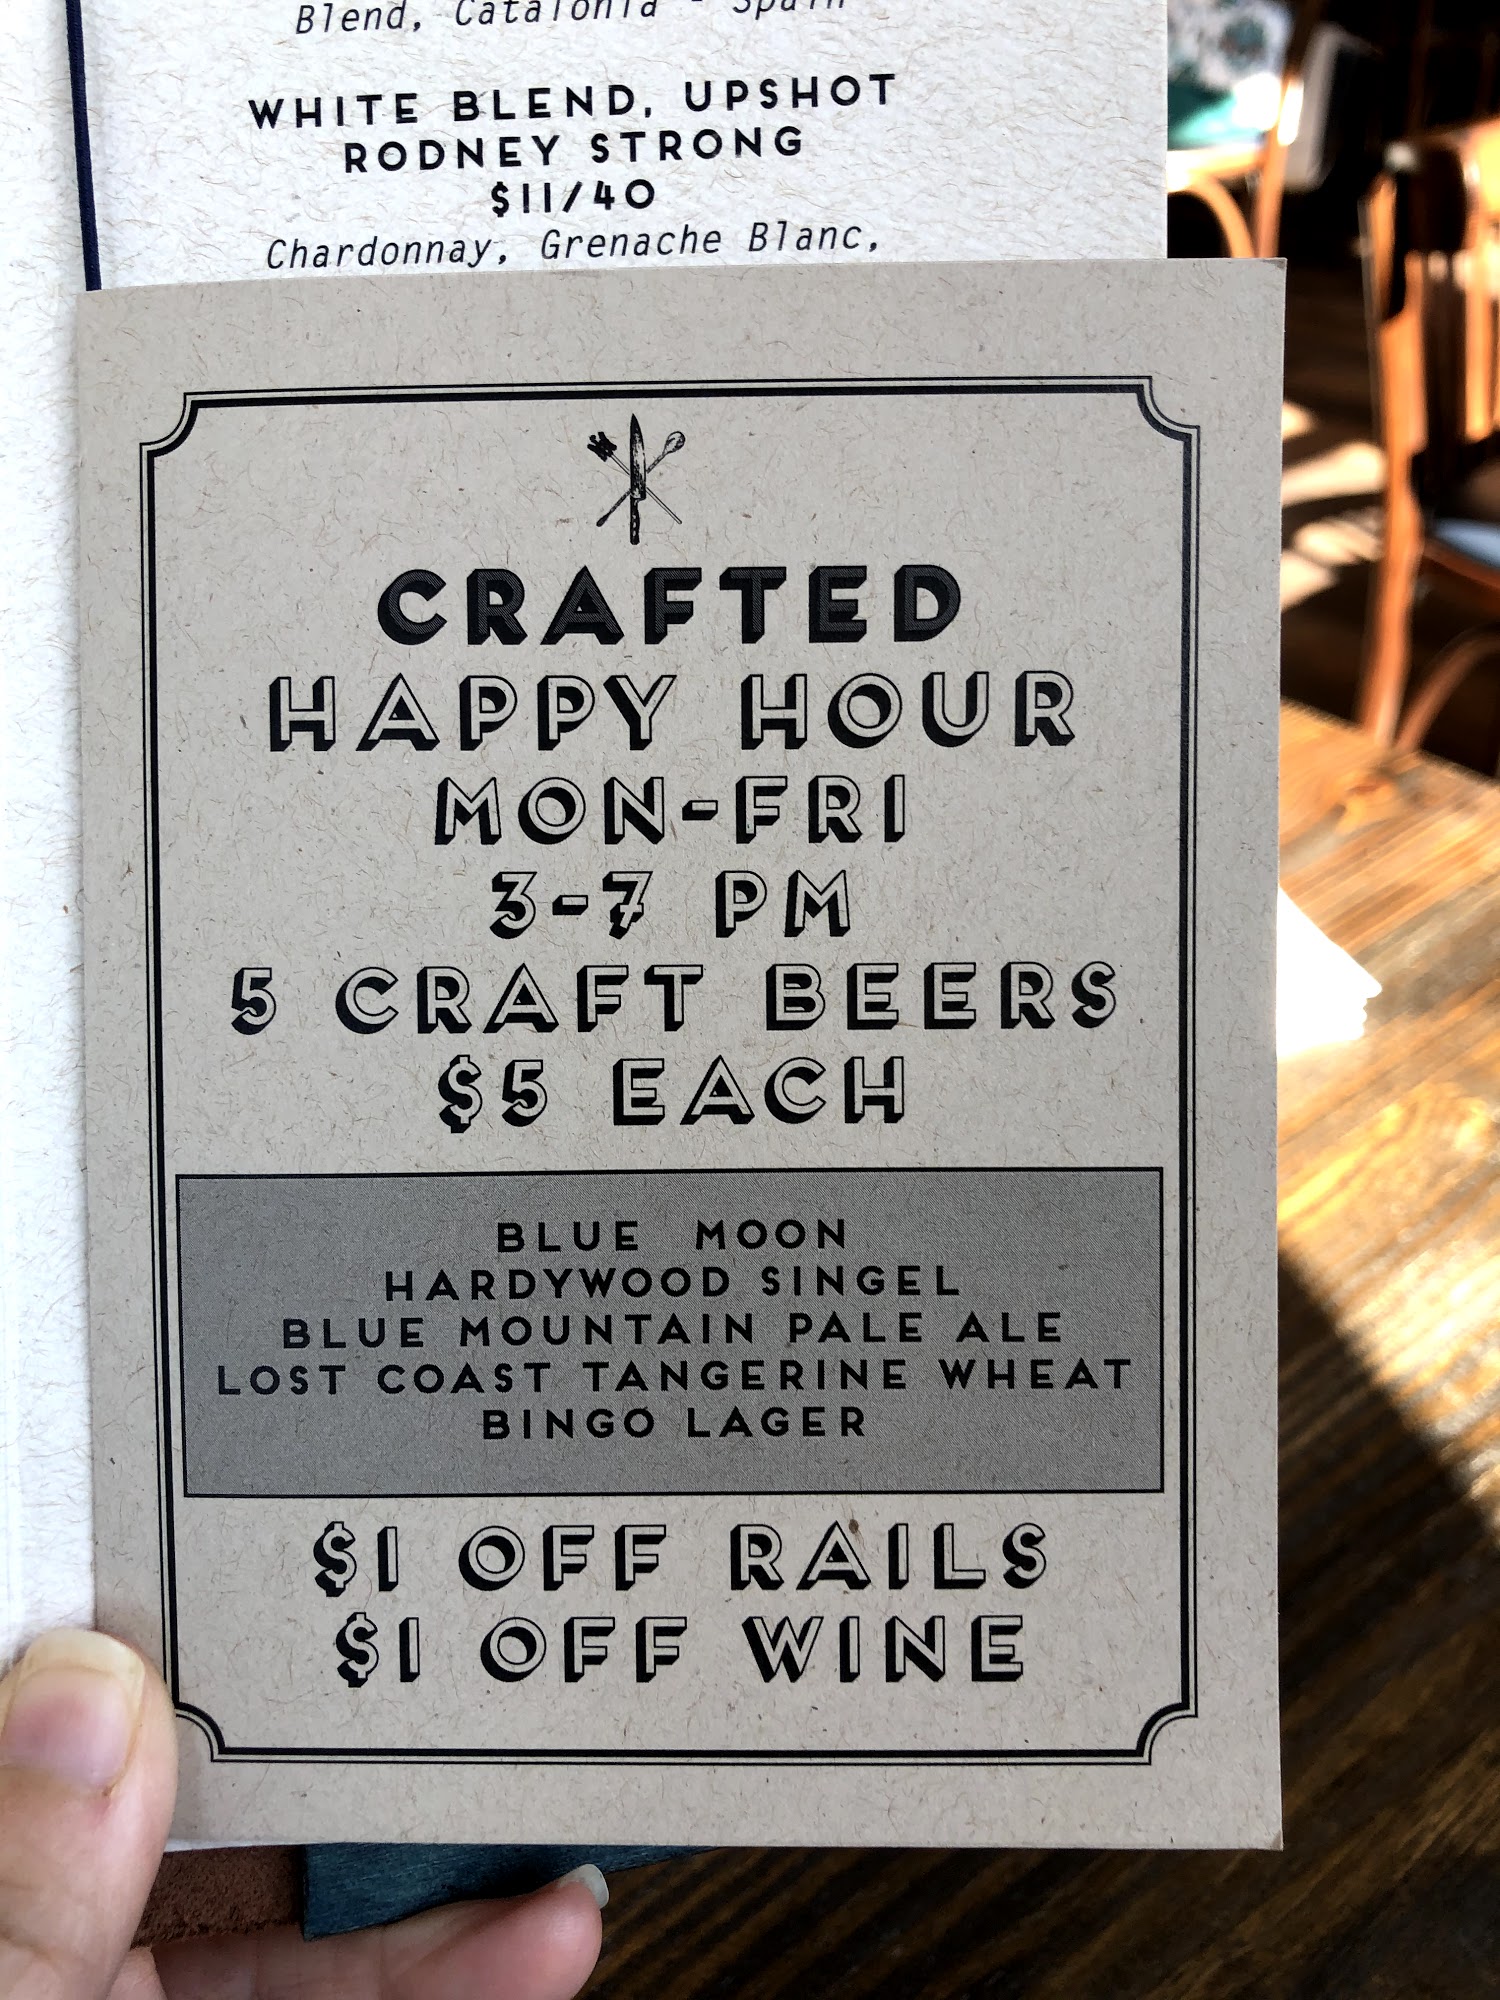 Blend, Catalonia - Spain
WHITE BLEND, UPSHOT
RODNEY STRONG
$11/40
Chardonnay, Grenache Blanc,
CRAFTED
HAPPY HOUR
MON-FRI
3-7 PM
5 CRAFT BEERS
$5 EACH
BLUE MOON
HARDYWOOD SINGEL
BLUE MOUNTAIN PALE ALE
LOST COAST TANGERINE WHEAT
BINGO LAGER
$1 OFF RAILS
$1 OFF WINE